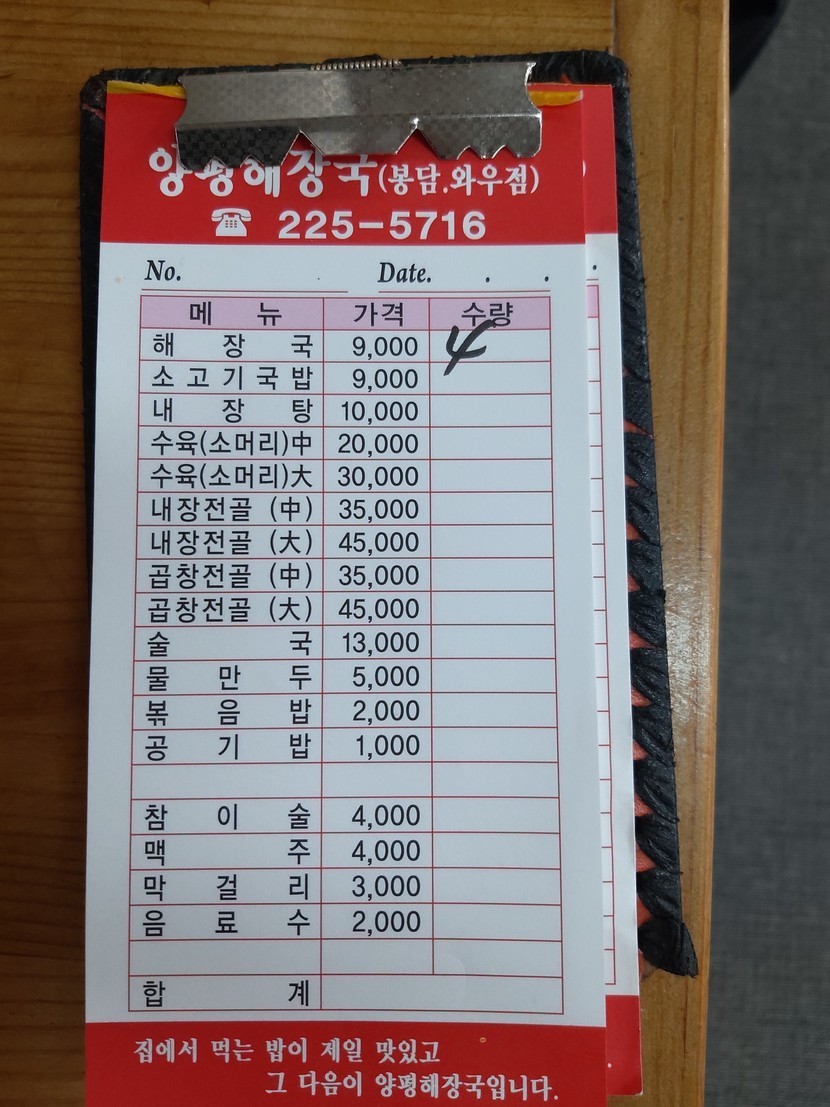 양평해장국(봉담.와우점)
☎ 225-5716
No. Date. . .
메 뉴 가격 수량
해 장 국 9,000 4
소 고 기 국 밥 9,000
내 장 탕 10,000
수육(소머리)中 20,000
수육(소머리)大 30,000
내장전골 (中) 35,000
내장전골 (大) 45,000
곱창전골 (中) 35,000
곱창전골 (大) 45,000
술 국 13,000
물 만 두 5,000
볶 음 밥 2,000
공 기 밥 1,000
참 이 술 4,000
맥 주 4,000
막 걸 리 3,000
음 료 수 2,000
합 계
집에서 먹는 밥이 제일 맛있고
그 다음이 양평해장국입니다.